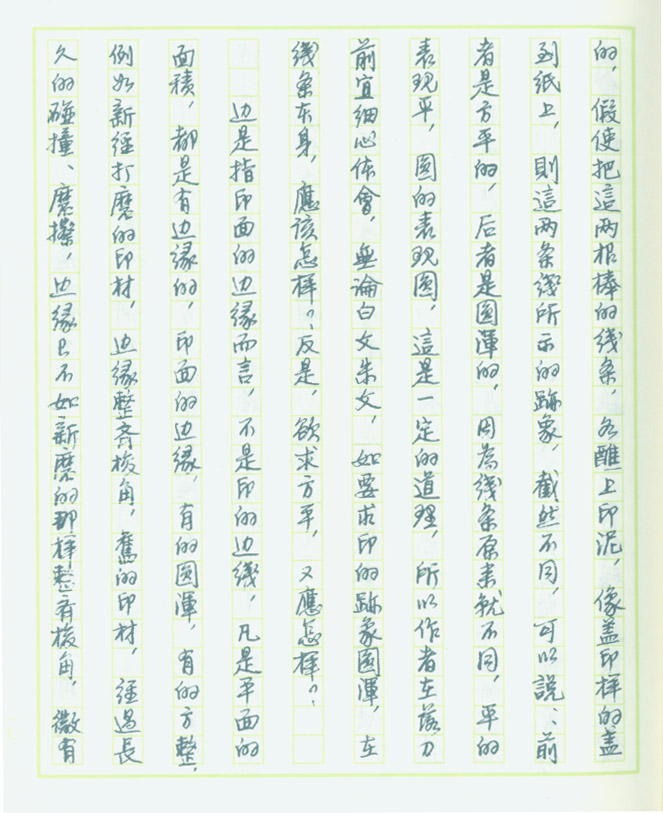 的，假使把這两根棒的线条，各醮上印泥，像盖印样的盖
到纸上，則這两条线所示的跡象，截然不同，可以說：前
者是方平的，后者是圆渾的，因為线条原来就不同，平的
表现平，圆的表现圆，這是一定的道理，所以作者在落刀
前宜细心体會，無論白文朱文，如要求印的跡象圆渾，在
线条本身，應该怎样？反是，欲求方平，又應怎样？
边是指印面的边缘而言，不是印的边线，凡是平面的
面積，都是有边缘的，印面的边缘，有的圆渾，有的方整，
例如新經打磨的印材，边缘整齐棱角，舊的印材，經過長
久的碰撞、磨擦，边缘已不如新磨的那样整齐棱角，微有